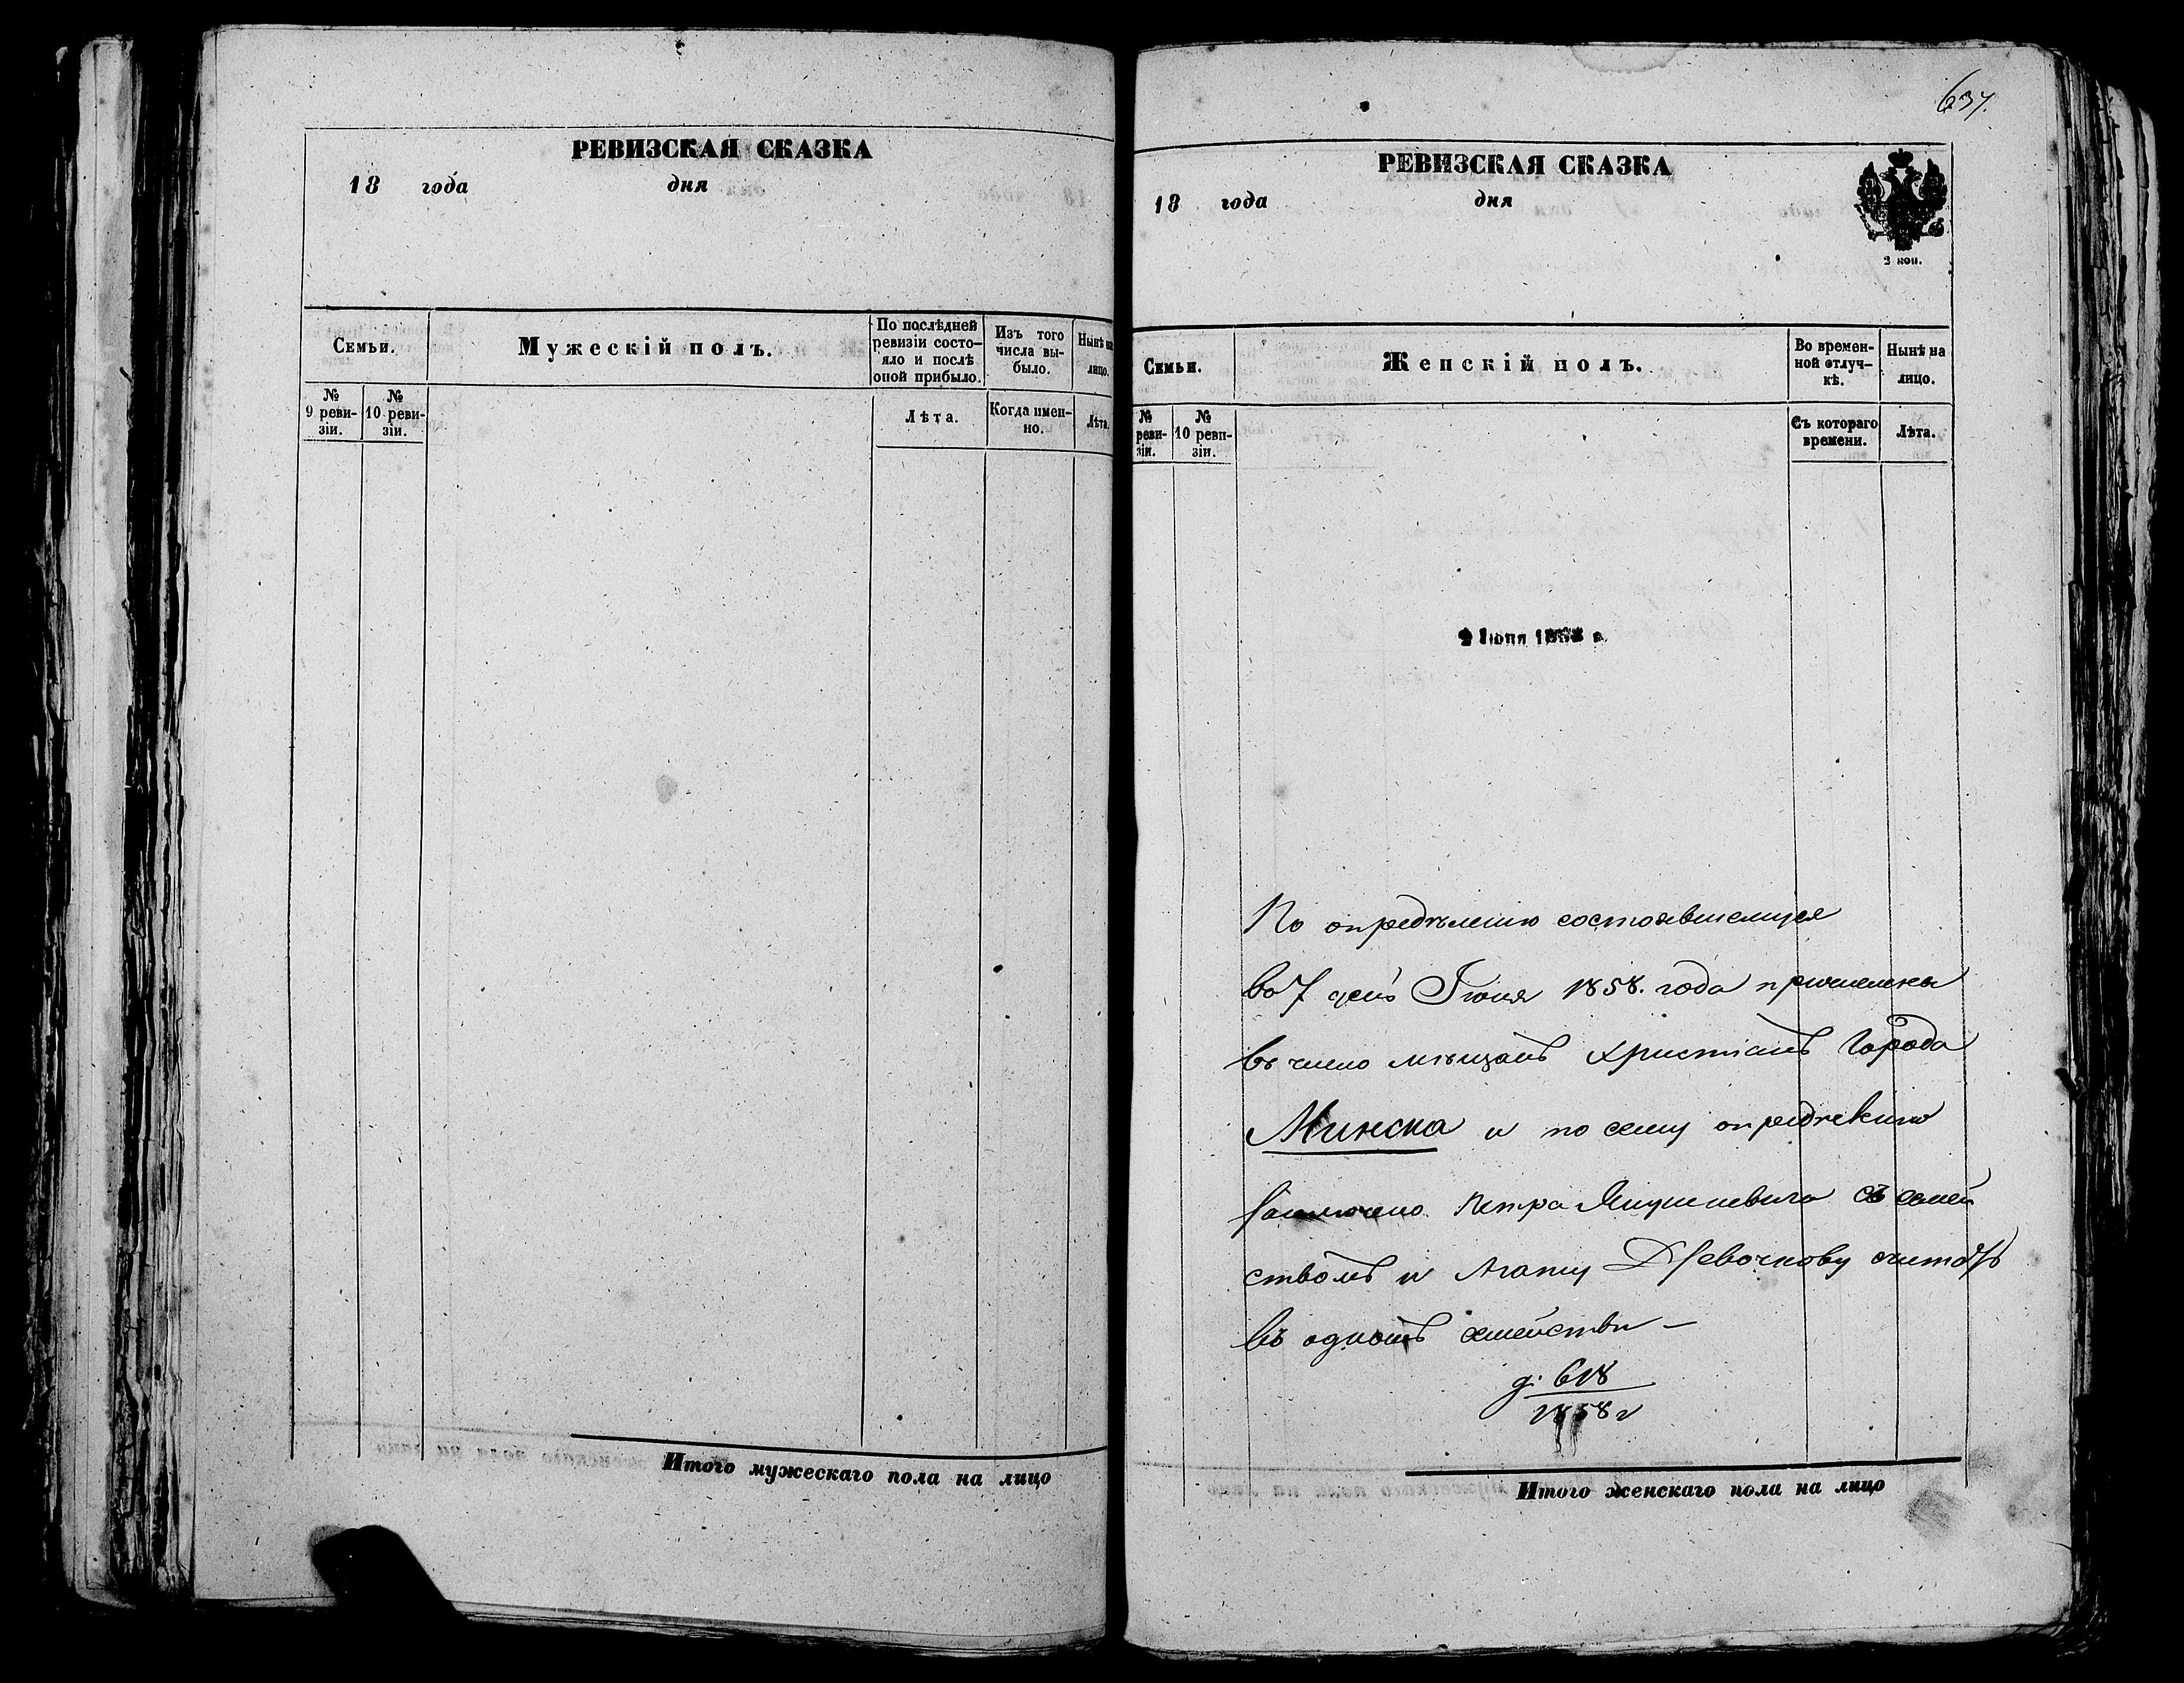 РЕВИЗСКАЯ СКАЗКА
18 года дня
Семьи.
Мужескій полъ.
По послѣдней
ревизіи состо-
яло и послѣ
оной прибыло.
Изъ того
числа вы-
было.
Нынѣ на
лицо.
№
9 реви-
зіи.
№
10 реви-
зіи.
Лѣта.
Когда имен-
но.
Лѣта.
Итого мужескаго пола на лицо
637.
РЕВИЗСКАЯ СКАЗКА
18 года дня
2 коп.
Семьи.
Женскій полъ.
Во времен-
ной отлуч-
кѣ.
Нынѣ на
лицо.
№
реви-
зіи.
№
10 реви-
зіи.
Съ котораго
времени.
Лѣта.
Іюня 1858 г.
По опредѣленію состоявшемуся
во 7 день Іюня 1858. года
въ число мѣщанъ христіанъ Города
Минска и по сему опредѣленію
заключено Петра съ семей
ствомъ и Агату считать
въ одномъ семействѣ —
д. 618
1858 г
Итого женскаго пола на лицо